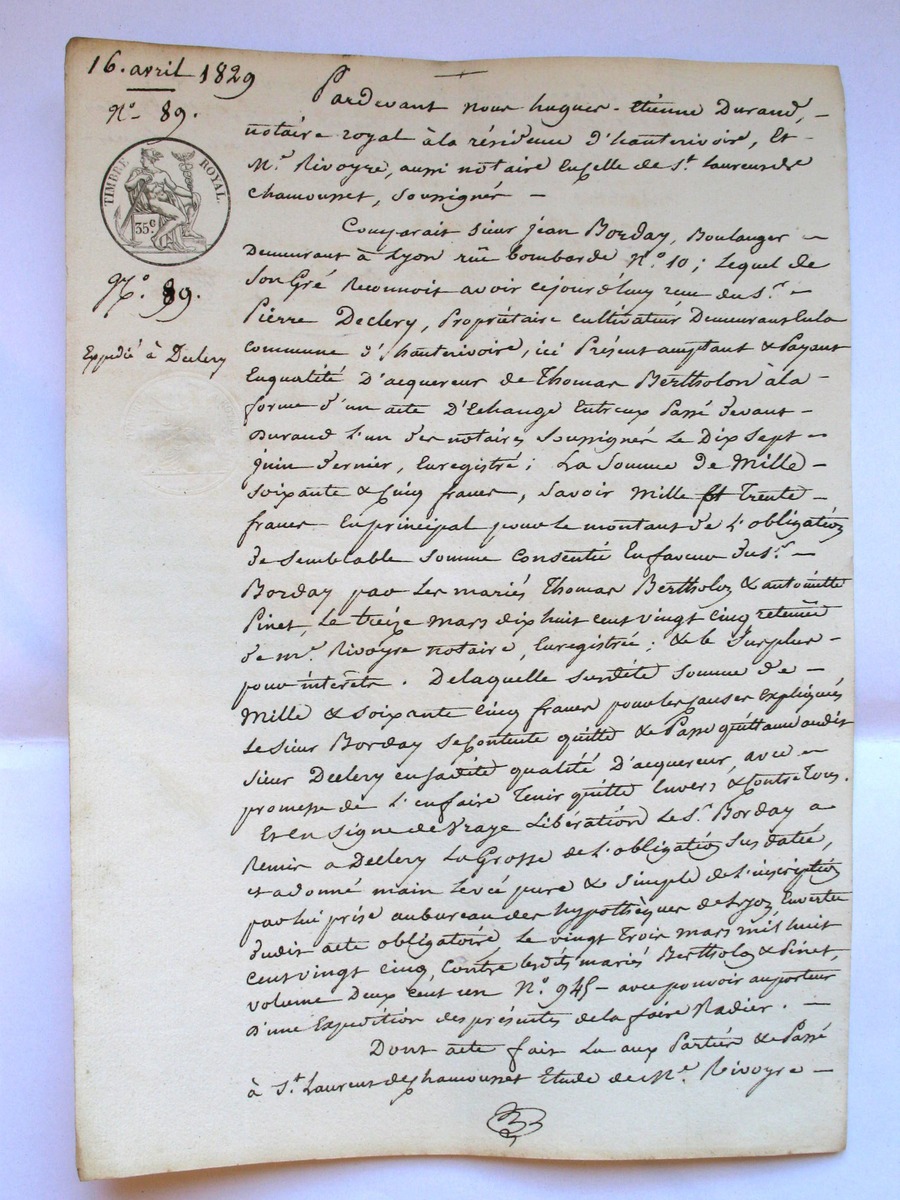 16. avril 1829
N° 89.
TIMBRE ROYAL.
35c
N°. 89.
Expédié à Declery
Pardevant nous hugues-Etienne Durand, -
notaire royal à la résidence d'hauterivoire, Et
Me. Rivoyre, aussi notaire Encelle de St. Laurent de
chamousset, Soussignés -
Comparait sieur jean Borday, Boulanger -
Demeurant à Lyon rüe Bombarde N°. 10; Lequel de
Son Gré Reconnoit avoir cejourd'huy reçu du Sr. -
Pierre Declery, Propriétaire cultivateur Demeurant Enla
commune d'hauterivoire, ici Présent acceptant & Payant
Enqualité D'acquereur de Thomas Bertholon àla -
forme d'un acte D'Echange Entreux Passé devant -
Durand L'un des notaires Soussignés Le Dix Sept -
juin dernier, Enregistré; La Somme de Mille -
Soixante & Cinq francs, Savoir Mille Et Trente -
francs En principal pour le montant de L'obligation
de Semblable Somme consentie En faveur du Sr. -
Borday par les mariés Thomas Bertholon & antoinette
Pinet, Le treize mars dix huit cent vingt cinq retenüe
de me. Rivoyre notaire, Enregistrée; & le Surplus -
pour intérêts. De laquelle Susdite Somme de -
Mille & Soixante Cinq francs pour les causes Expliquées
Le Sieur Borday Se Contente quitte & Passe quittance audit
Sieur Declery en Sadite qualité D'acquereur, avec -
promesse de L'en faire Tenir quitte Envers & Contre Tous.
Et En Signe de Vraye Libération Le Sr. Borday a
Remis a Declery La Grosse de L'obligation Sus datée,
et a donné main Levée pure & Simple de L'inscription
par lui prise au bureau des hypothèques de Lyon En vertu
dudit acte obligatoire Le vingt Trois mars mil huit
cent vingt cinq, Contre lesdits mariés Bertholon & Pinet,
volume Deux cent un N°. 945 - avec pouvoir au porteur
D'une Expédition des présentes de la faire Radier. -
Dont acte fait Lu aux Parties & Passé
à St. Laurent de Chamousset Etude de Me. Rivoyre -